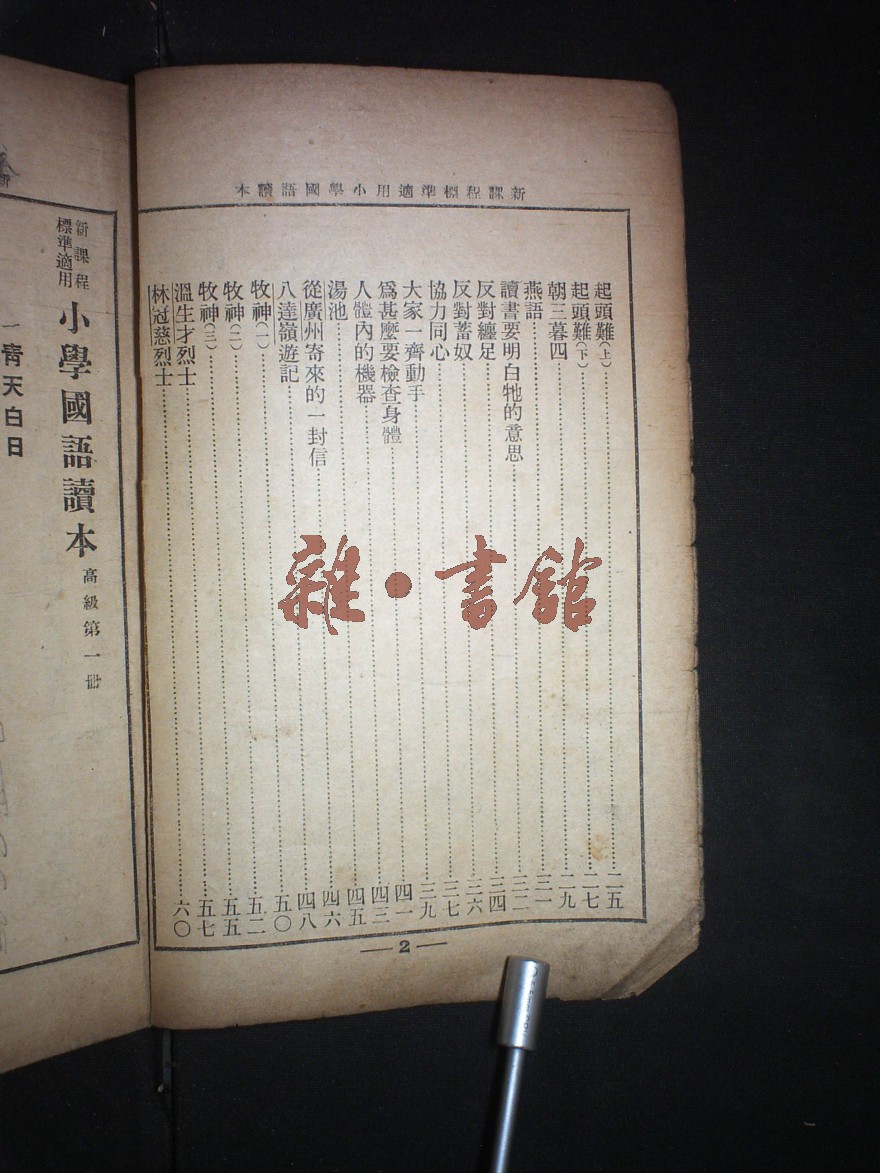 新課程標準適用小學國語讀本
起頭難(上)……二五
起頭難(下)……二七
朝三暮四……二九
燕語……三一
讀書要明白牠的意思……三二
反對纏足……三四
反對蓄奴……三六
協力同心……三七
大家一齊動手……三九
爲甚麼要檢查身體……四一
人體內的機器……四三
湯池……四五
從廣州寄來的一封信……四六
八達嶺遊記……四八
牧神(一)……五〇
牧神(二)……五二
牧神(三)……五五
溫生才烈士……五七
林冠慈烈士……六〇
2
雜·書館
新課程標準適用 小學國語讀本 高級第一冊
一 青天白日